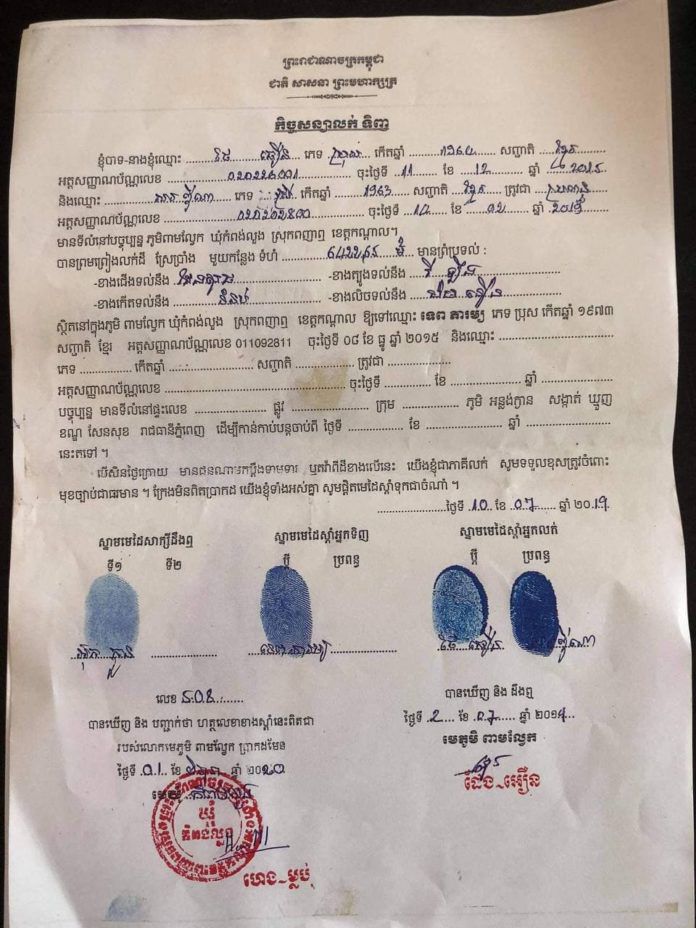 ព្រះរាជាណាចក្រកម្ពុជា
ជាតិ សាសនា ព្រះមហាក្សត្រ
កិច្ចសន្យាលក់ ទិញ
ខ្ញុំបាទ-នាងខ្ញុំឈ្មោះ ភេទ ប្រុស កើតឆ្នាំ 1964 សញ្ជាតិ ខ្មែរ
អត្តសញ្ញាណប័ណ្ណលេខ ចុះថ្ងៃទី 11 ខែ 12 ឆ្នាំ 2015
និងឈ្មោះ ភេទ ស្រី កើតឆ្នាំ 1963 សញ្ជាតិ ខ្មែរ ត្រូវជា ប្រពន្ធ
អត្តសញ្ញាណប័ណ្ណលេខ ចុះថ្ងៃទី ខែ 02 ឆ្នាំ
មានទីលំនៅបច្ចុប្បន្ន ភូមិពាមល្វែក ឃុំកំពង់លួង ស្រុកពញាឮ ខេត្តកណ្តាល។
បានព្រមព្រៀងលក់ដី ស្រែប្រាំង មួយកន្លែង ទំហំ មានព្រំប្រទល់ :
-ខាងជើងទល់នឹង -ខាងត្បូងទល់នឹង
-ខាងកើតទល់នឹង ទំនប់ -ខាងលិចទល់នឹង
ស្ថិតនៅក្នុងភូមិ ពាមល្វែក ឃុំកំពង់លួង ស្រុកពញាឮ ខេត្តកណ្តាល ឱ្យទៅឈ្មោះ ទេព ភារម្យ ភេទ ប្រុស កើតឆ្នាំ ១៩៧៣
សញ្ជាតិ ខ្មែរ អត្តសញ្ញាណប័ណ្ណលេខ 011092811 ចុះថ្ងៃទី 08 ខែ ធ្នូ ឆ្នាំ 2015 និងឈ្មោះ
ភេទ កើតឆ្នាំ សញ្ជាតិ ត្រូវជា
អត្តសញ្ញាណប័ណ្ណលេខ ចុះថ្ងៃទី ខែ ឆ្នាំ
បច្ចុប្បន្ន មានទីលំនៅផ្ទះលេខ ផ្លូវ ក្រុម ភូមិ អន្លង់ក្ងាន សង្កាត់ ឃ្មួញ
ខណ្ឌ សែនសុខ រាជធានីភ្នំពេញ ដើម្បីកាន់កាប់បន្តចាប់ពី ថ្ងៃទី ខែ ឆ្នាំ
នេះតទៅ ។
បើសិនថ្ងៃក្រោយ មានជនណាមកប្តឹងទាមទារ ឬតវ៉ាពីដីខាងលើនេះ យើងខ្ញុំជាភាគីលក់ សូមទទួលខុសត្រូវចំពោះ
មុខច្បាប់ជាធរមាន ។ ក្រែងមិនពិតប្រាកដ យើងខ្ញុំទាំងអស់គ្នា សូមផ្តិតមេដៃស្តាំទុកជាចំណាំ ។
ថ្ងៃទី 10 ខែ 07 ឆ្នាំ 2019
ស្នាមមេដៃសាក្សីដឹងឮ ស្នាមមេដៃស្តាំអ្នកទិញ ស្នាមមេដៃស្តាំអ្នកលក់
ទី១ ទី២ ប្តី ប្រពន្ធ ប្តី ប្រពន្ធ
លេខ
បានឃើញ និង ដឹងឮ
បានឃើញ និង បញ្ជាក់ថា ហត្ថលេខាខាងស្តាំនេះពិតជា
ថ្ងៃទី 2 ខែ 07 ឆ្នាំ 2019
របស់លោកមេភូមិ ពាមល្វែក ប្រាកដមែន
មេភូមិ ពាមល្វែក
ថ្ងៃទី 01 ខែ ឆ្នាំ 2020
ឃុំ
កំពង់លួង